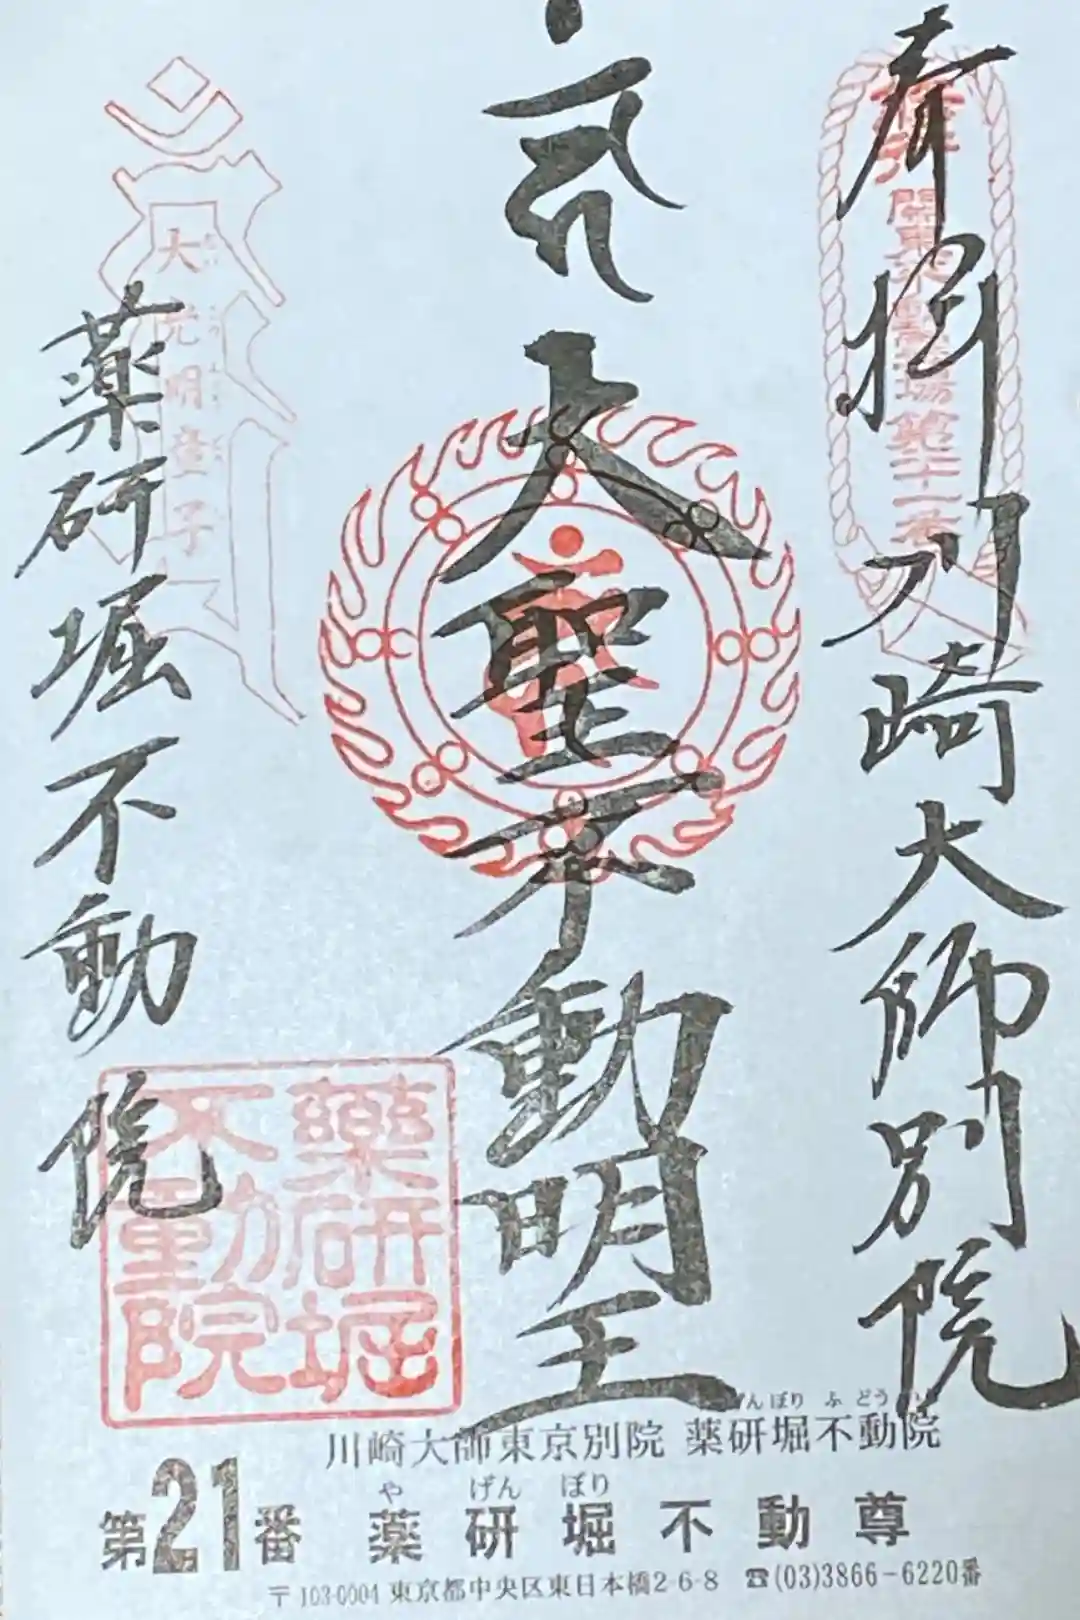 奉拝
川崎大師別院
大聖不動明王
薬研堀不動院
関東不動霊場第二十一番
大光明童子
薬研堀
不動院
川崎大師東京別院 薬研堀不動院
や げん ぼり
第21番 薬研堀不動尊
〒103-0004 東京都中央区東日本橋2-6-8 ☎(03)3866-6220番